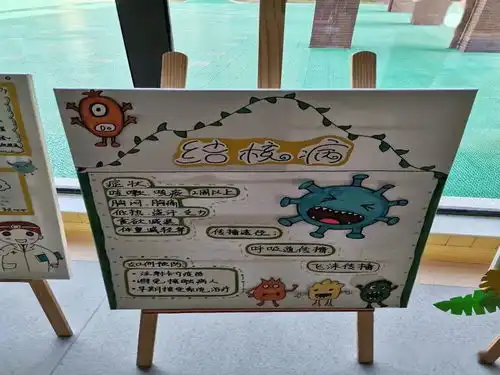 结核病
症状
咳嗽、咳痰 2周以上
胸闷、胸痛
低热、盗汗、乏力
食欲减退
体重减轻等
传播途径:
呼吸道传播
飞沫传播
如何预防
·注射卡介苗
·避免接触病人
·早期接受系统治疗